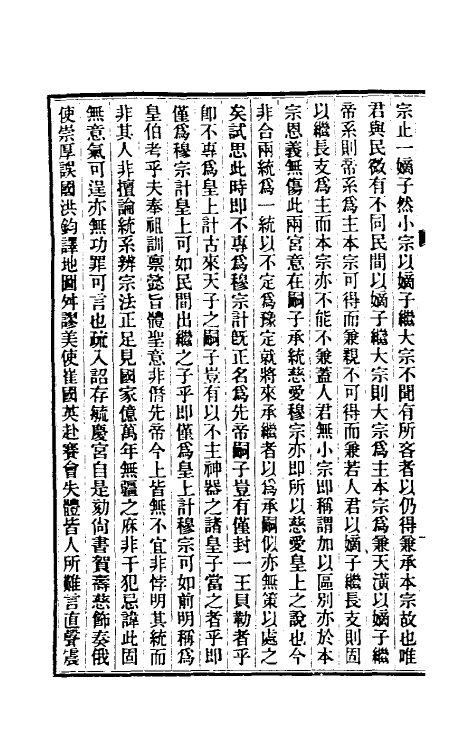 宗止一嫡子然小宗以嫡子繼大宗不聞有所吝者以仍得兼承本宗故也唯
君與民微有不同民間以嫡子繼大宗則大宗爲主本宗爲兼天潢以嫡子繼
帝系則帝系爲主本宗可得而兼親不可得而兼若人君以嫡子繼長支則固
以繼長支爲主而本宗亦不能不兼蓋人君無小宗即稱謂加以區別亦於本
宗恩義無傷此兩宮意在嗣子承統慈愛穆宗亦即所以慈愛皇上之說也今
非合兩統爲一統以不定爲豫定就將來承繼者以爲承嗣似亦無策以處之
矣試思此時即不專爲穆宗計旣正名爲先帝嗣子豈有僅封一王貝勒者乎
卽不專爲皇上計古來天子之嗣子豈有以不主神器之諸皇子當之者乎即
僅爲穆宗計皇上可如民間出繼之子乎即僅爲皇上計穆宗可如前明稱爲
皇伯考乎夫奉祖訓稟懿旨體聖意非僭先帝今上皆無不宜非悖明其統而
非其人非擅論統系辨宗法正足見國家億萬年無疆之庥非干犯忌諱此固
無意氣可逞亦無功罪可言也疏入詔存毓慶宮自是劾尙書賀壽慈飾奏俄
使崇厚誤國洪鈞譯地圖舛謬美使崔國英赴賽會失體皆人所難言直聲震